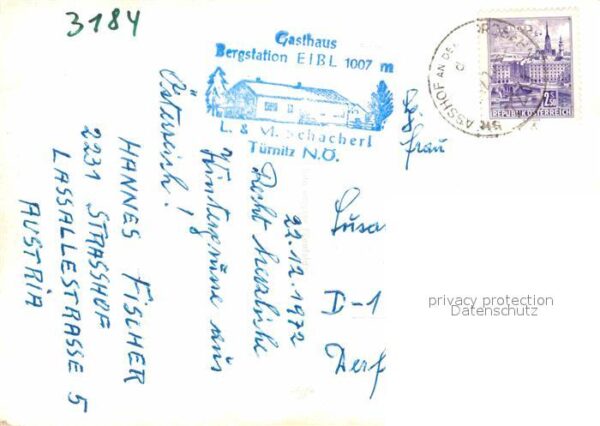 3184
Gasthaus
Bergstation EIBL 1007 m
L. & M. Schacherl
Türnitz N.Ö.
2.50
REPUBLIK ÖSTERREICH
ASSHOF AN DER
22.12.1972
Recht herzliche
Wintergrüsse aus
Österreich!
HANNES FISCHER
2231 STRASSHOF
LASSALLESTRASSE 5
AUSTRIA
Frau
Susa
D-1
privacy protection
Datenschutz